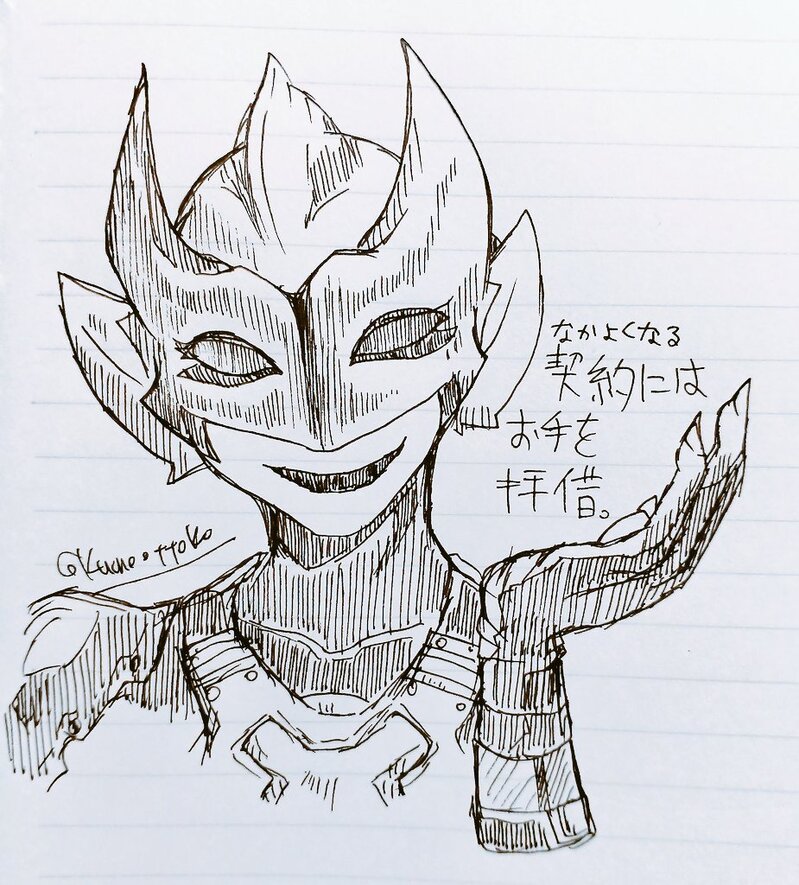 なかよくなる
契約には
お手を
拝借。